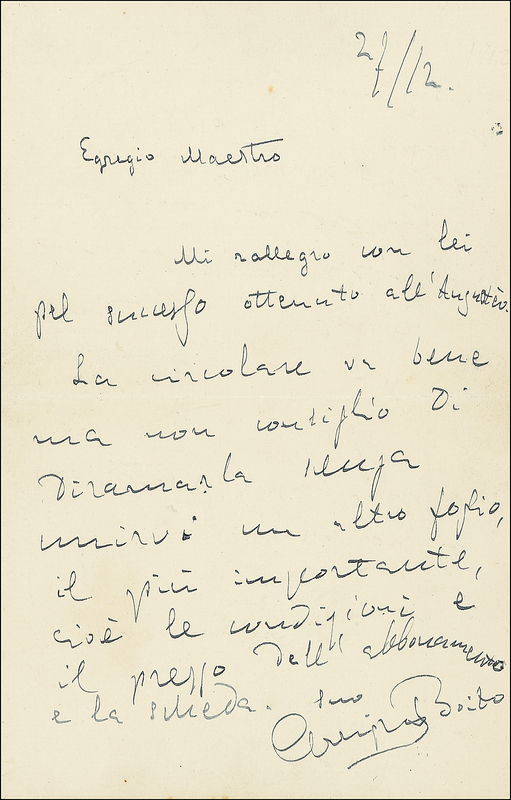 27/12.
Egregio Maestro
Mi rallegro con lei
pel successo ottenuto all'Augusteo.
La circolare va bene
ma non consiglio di
diramarla senza
unirvi un altro foglio,
il più importante,
cioè le condizioni e
il prezzo dell'abbonamento
e la scheda. suo
Arrigo Boito